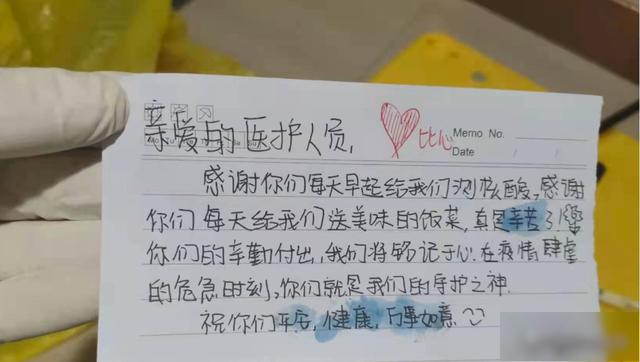 亲爱的医护人员,
比心
Memo No.
Date / /
感谢你们每天早起给我们测核酸,感谢
你们每天给我们送美味的饭菜,真是辛苦了!
你们的辛勤付出,我们将铭记于心.在疫情肆虐
的危急时刻,你们就是我们的守护之神.
祝你们平安,健康,万事如意